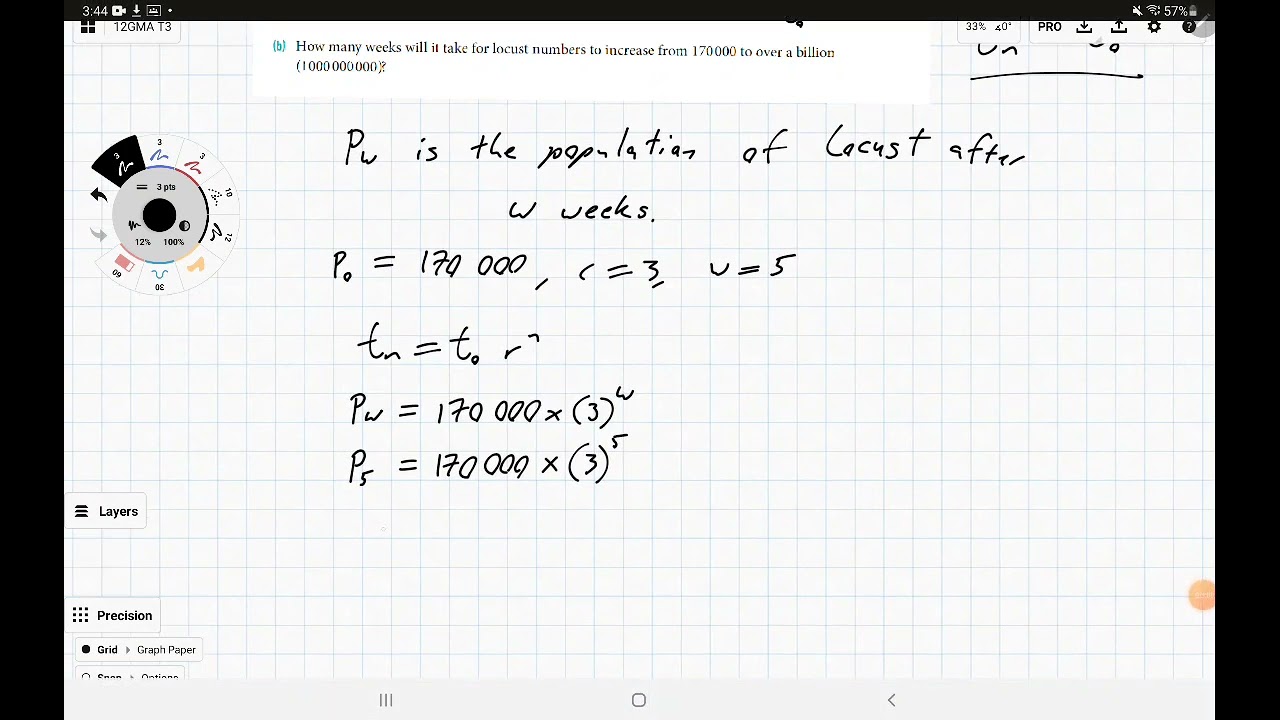 3:44 57%
12GMA T3 33% ⊾0° PRO
(b) How many weeks will it take for locust numbers to increase from 170000 to over a billion
(1000000000)?
Pw is the population of Locust after
w weeks.
P₀ = 170 000, r = 3, w = 5
tn = t₀ rⁿ
Pw = 170 000 × (3)^w
P₅ = 170 000 × (3)^5
3
3 3
3 pts 10
12
12% 100%
60
30
Layers
Precision
Grid Graph Paper
Snap Options